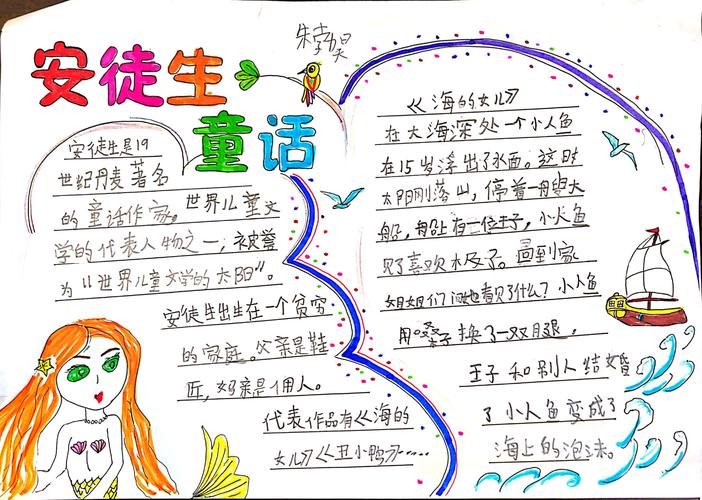 安徒生
童话
安徒生是19
世纪丹麦著名
的童话作家。世界儿童文
学的代表人物之一,被誉
为"世界儿童文学的太阳"。
安徒生出生在一个贫穷
的家庭。父亲是鞋
匠,妈亲是佣人。
代表作品有《海的
女儿》《丑小鸭》……
《海的女儿》
在大海深处一个小人鱼
在15岁浮出了水面。这时
太阳刚落山,停着一艘大
船,船上有一位王子,小人鱼
见了喜欢极了。回到家
姐姐们问她看见了什么?小人鱼
用嗓子换了一双腿。
王子和别人结婚
了小人鱼变成了
海上的泡沫。